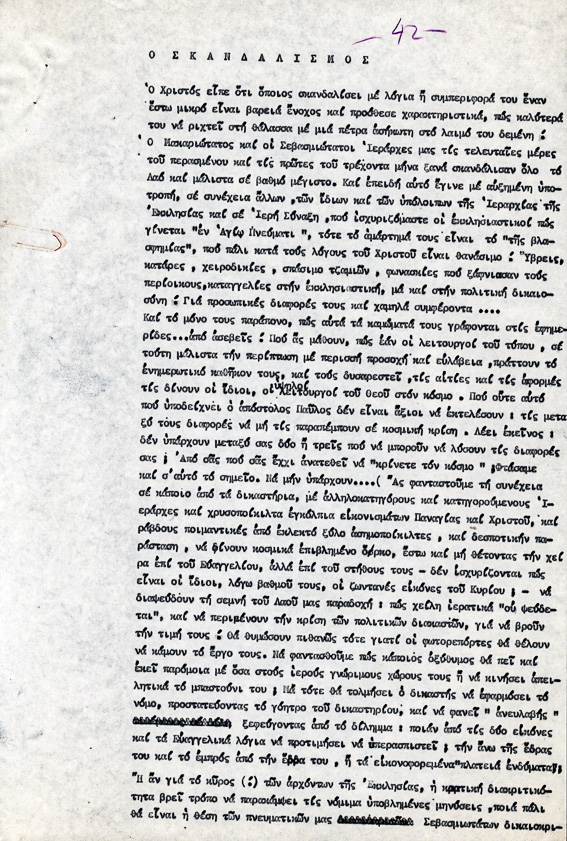 -42-
Ο ΣΚΑΝΔΑΛΙΣΜΟΣ
Ὁ Χριστός εἶπε ὅτι ὅποιος σκανδαλίσει μέ λόγια ἤ συμπεριφορά του ἕναν
ἔστω μικρό εἶναι βαρειά ἔνοχος καί πρόσθεσε χαρακτηριστικά, πώς καλύτερά
του νά ριχτεῖ στή θάλασσα μέ μιά πέτρα ἀσήκωτη στό λαιμό του δεμένη :
Ο Μακαριώτατος καί οἱ Σεβασμιώτατοι Ἱεράρχες μας τίς τελευταῖες μέρες
τοῦ περασμένου καί τίς πρῶτες τοῦ τρέχοντα μήνα ξανά σκανδάλισαν ὅλο τό
Λαό καί μάλιστα σέ βαθμό μέγιστο. Καί ἐπειδή αὐτό ἔγινε μέ αὐξημένη ὑπο-
τροπή, σέ συνέχεια ἄλλων ,τῶν ἰδίων καί τῶν ὑπόλοιπων τῆς Ἱεραρχίας τῆς
Ἐκκλησίας καί σέ Ἱερή Σύναξη ,πού ἰσχυριζόμαστε οἱ ἐκκλησιαστικοί πώς
γίνεται "ἐν Ἁγίῳ Πνεύματι ", τότε τό ἁμάρτημά τους εἶναι τό "τῆς βλα-
σφημίας", πού πάλι κατά τούς λόγους τοῦ Χριστοῦ εἶναι θανάσιμο : Ὕβρεις,
κατάρες , χειροδικίες , σπάσιμο τζαμιῶν, φωνασκίες πού ξάφνιασαν τούς
περίοικους,καταγγελίες στήν ἐκκλησιαστική, μά καί στήν πολιτική δικαιο-
σύνη : Γιά προσωπικές διαφορές τους καί χαμηλά συμφέροντα ....
Καί τό μόνο τους παράπονο, πώς αὐτά τά καμώματά τους γράφονται στίς ἐφημε-
ρίδες...ἀπό ἀσεβεῖς : Πού ἄς μάθουν, πώς ἐάν οἱ λειτουργοί τοῦ τύπου , σέ
τούτη μάλιστα τήν περίπτωση μέ περισσή προσοχή καί εὐλάβεια ,πράττουν τό
ἐνημερωτικό καθῆκον τους, καί τούς δυσαρεστεῖ ,τίς αἰτίες καί τίς ἀφορμές
τίς δίνουν οἱ ἴδιοι, οἱ ὑψηλοί λειτουργοί τοῦ θεοῦ στόν κόσμο . Πού οὔτε αὐτό
πού ὑποδείχνει ὁ ἀπόστολος Παῦλος δέν εἶναι ἄξιοι νά ἐκτελέσουν : τίς μετα
ξύ τους διαφορές νά μή τίς παραπέμπουν σέ κοσμική κρίση . Λέει ἐκεῖνος :
δέν ὑπάρχουν μεταξύ σας δύο ἤ τρεῖς πού νά μποροῦν νά λύσουν τίς διαφορές
σας ; Ἀπό σᾶς πού σᾶς ἔχχι ἀνατεθεῖ νά "κρίνετε τόν κόσμο " ;Φτάσαμε
καί σ'αὐτό τό σημεῖο. Νά μήν ὑπάρχουν....( Ἄς φανταστοῦμε τή συνέχεια
σέ κάποιο ἀπό τά δικαστήρια, μέ ἀλληλοκατηγόρους καί κατηγορούμενους Ἱ-
εράρχες καί χρυσοποίκιλτα ἐγκόλπια εἰκονισμάτων Παναγίας καί Χριστοῦ, καί
ράβδους ποιμαντικές ἀπό ἐκλεκτό ξύλο ἀσημοποίκιλτες , καί δεσποτικήν πα-
ράσταση , νά δίνουν κοσμικά ἐπιβλημένο ὅρκο, ἔστω καί μή θέτοντας τήν χεῖ
ρα ἐπί τοῦ Εὐαγγελίου, ἀλλά ἐπί τοῦ στήθους τους - δέν ἰσχυρίζονται πώς
εἶναι οἱ ἴδιοι, λόγω βαθμοῦ τους, οἱ ζωντανές εἰκόνες τοῦ Κυρίου ; - νά
διαψεύδουν τή σεμνή τοῦ Λαοῦ μας παραδοχή : πώς χείλη ἱερατικά "οὐ ψεύδε-
ται", καί νά περιμένουν τήν κρίση τῶν πολιτικῶν δικαστῶν, γιά νά βροῦν
τήν τιμή τους : θά θυμώσουν πιθανῶς τότε γιατί οἱ φωτορεπόρτες θά θέλουν
νά κάμουν τό ἔργο τους. Νά φαντασθοῦμε πώς κάποιος ὀξύθυμος θά πεῖ καί
ἐκεῖ παρόμοια μέ ὅσα στούς ἱερούς γνώριμους χώρους τους ἤ νά κινήσει ἀπει-
λητικά τό μπαστούνι του ; Νά τότε θά τολμήσει ὁ δικαστής νά ἐφαρμόσει τό
νόμο, προστατεύοντας τό γόητρο τοῦ δικαστηρίου; καί νά φανεῖ " ἀνευλαβής "
ξεφεύγοντας ἀπό τό δίλημμα : ποιάν ἀπό τίς δύο εἰκόνες
καί τά Εὐαγγελικά λόγια νά προτιμήσει νά ὑπερασπιστεῖ ; τήν ἄνω τῆς ἕδρας
του καί τό ἐμπρός ἀπό τήν ἕβρα του , ἤ τά εἰκονοφορεμένα"πλατειά ἐνδύματα;
Ἤ ἄν γιά τό κῦρος (:) τῶν ἀρχόντων τῆς Ἐκκλησίας, ἡ κρατική διακριτικό-
τητα βρεῖ τρόπο νά παρακάμψει τίς νόμιμα ὑποβλημένες μηνύσεις ,ποιά πάλι
θά εἶναι ἡ θέση τῶν πνευματικῶν μας Σεβασμιωτάτων δικαιοκρι-